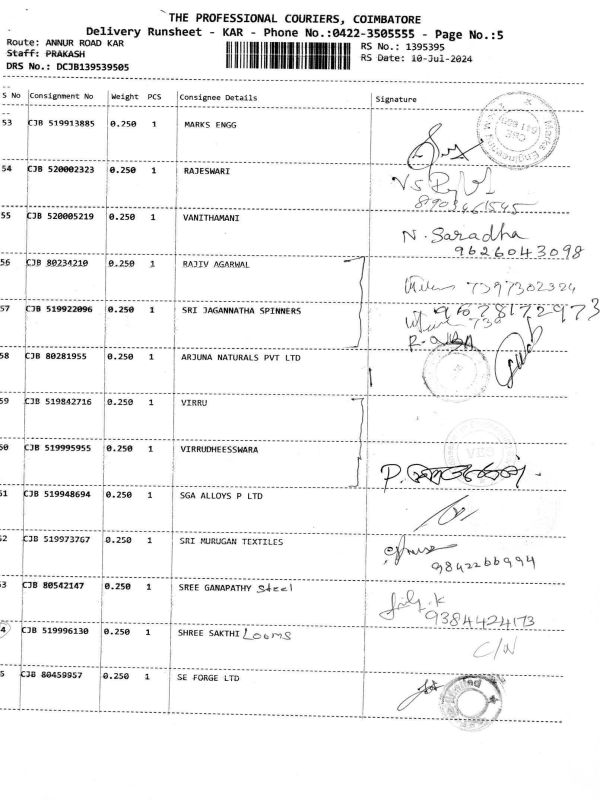 THE PROFESSIONAL COURIERS, COIMBATORE
Delivery Runsheet - KAR - Phone No.:0422-3505555 - Page No.:5
Route: ANNUR ROAD KAR
RS No.: 1395395
Staff: PRAKASH
RS Date: 10-Jul-2024
DRS No.: DCJB139539505
S No Consignment No Weight PCS Consignee Details Signature
53 CJB 519913885 0.250 1 MARKS ENGG
54 CJB 520002323 0.250 1 RAJESWARI
55 CJB 520005219 0.250 1 VANITHAMANI N. Saradha
9626043098
56 CJB 80234210 0.250 1 RAJIV AGARWAL
57 CJB 519922096 0.250 1 SRI JAGANNATHA SPINNERS
58 CJB 80281955 0.250 1 ARJUNA NATURALS PVT LTD
59 CJB 519842716 0.250 1 VIRRU
60 CJB 519995955 0.250 1 VIRRUDHEESSWARA
61 CJB 519948694 0.250 1 SGA ALLOYS P LTD
62 CJB 519973767 0.250 1 SRI MURUGAN TEXTILES
9842266994
63 CJB 80542147 0.250 1 SREE GANAPATHY Steel
9384424173
64 CJB 519996130 0.250 1 SHREE SAKTHI Looms C/N
65 CJB 80459957 0.250 1 SE FORGE LTD